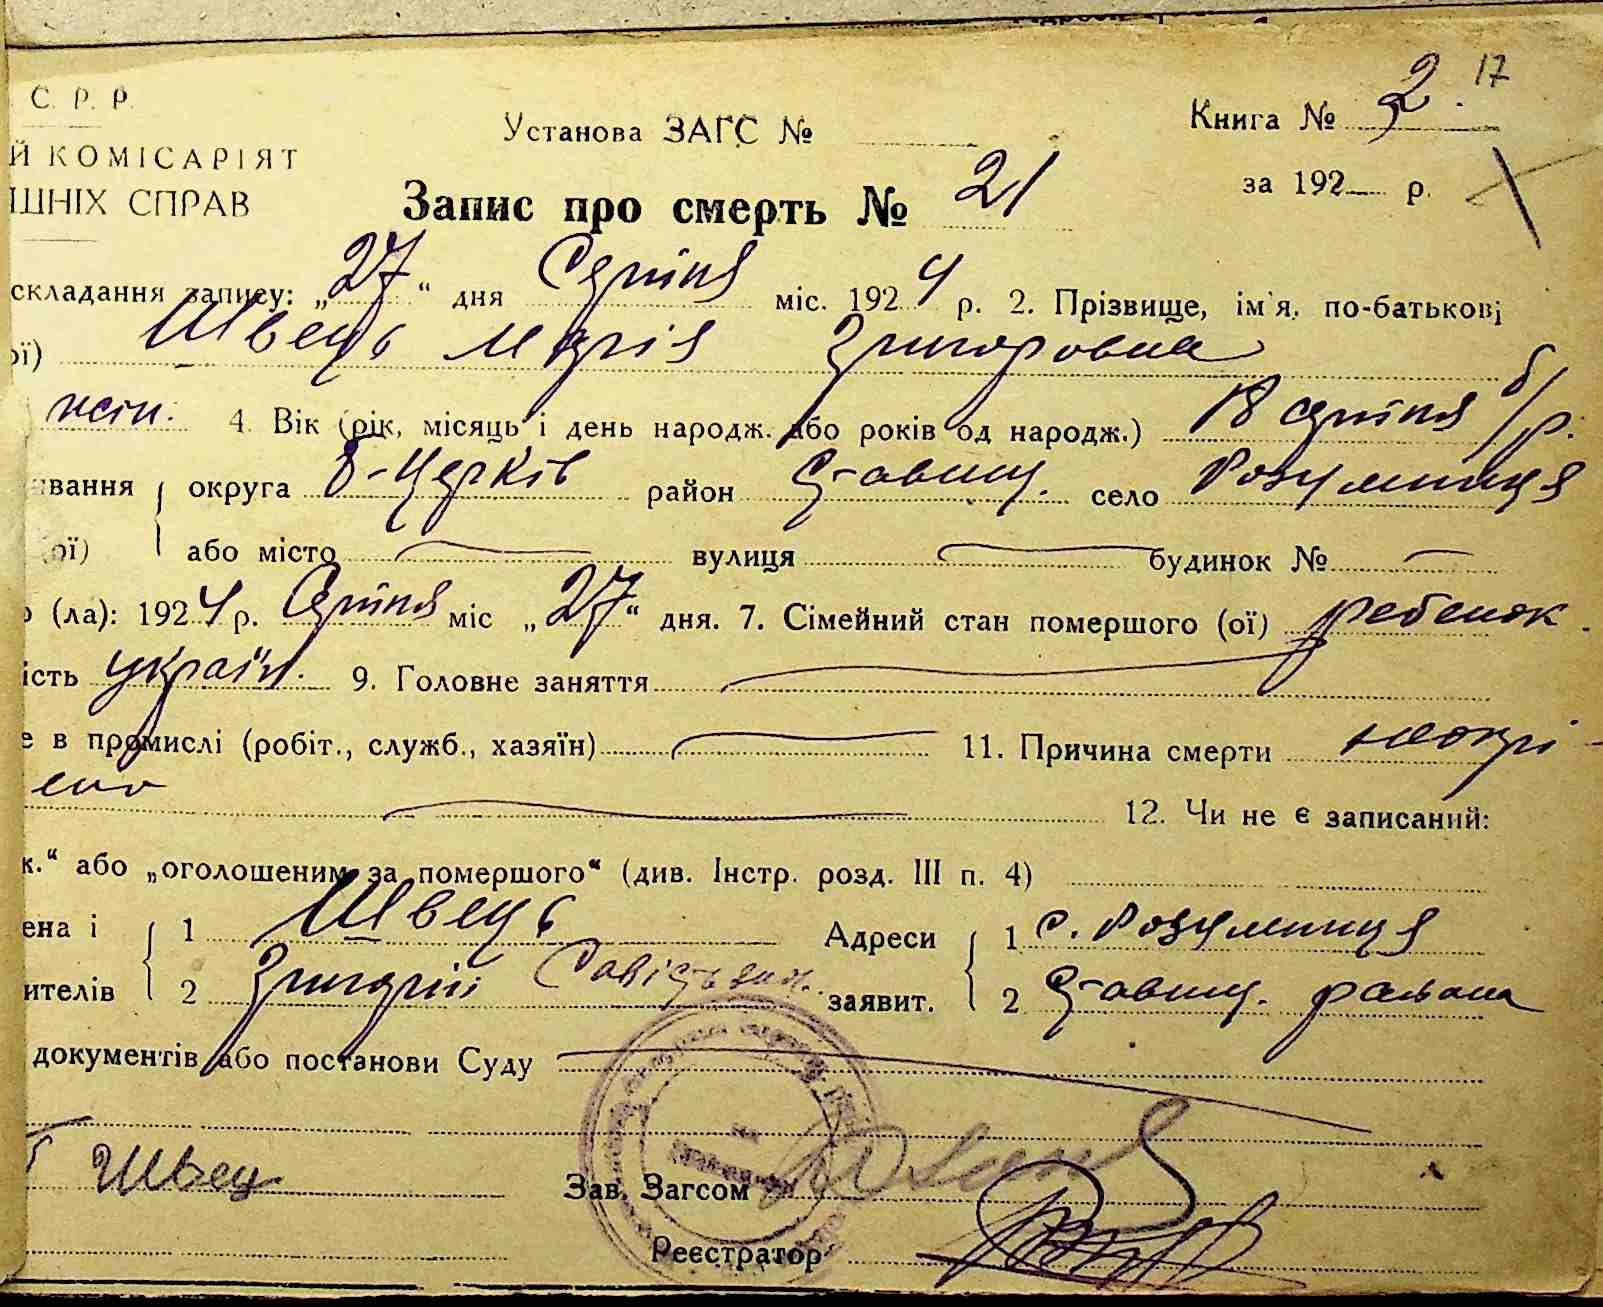 С. Р. Р.
17
Книга № 2.
Установа ЗАГС №
Й КОМІСАРІЯТ
за 192 р.
ШНІХ СПРАВ
Запис про смерть № 21
складання запису: „27“ дня Серпня міс. 1924 р. 2. Прізвище, ім'я, по-батькові
ої) Швець Марія Григоровна
жін. 4. Вік (рік, місяць і день народж. або років од народж.) 18 серпня б/р.
ивання округа Б-Церків район Ставищ. село Розумниця
(ої) або місто вулиця будинок №
о (ла): 1924 р. Серпня міс „27“ дня. 7. Сімейний стан помершого (ої) ребенок.
ість україн. 9. Головне заняття
е в промислі (робіт., служб., хазяїн) 11. Причина смерти
ено 12. Чи не є записаний:
к.“ або „оголошеним за помершого“ (див. Інстр. розд. III п. 4)
ена і 1 Швець Адреси 1 с. Розумниця
ителів 2 Григорій заявит. 2 Ставищ. района
документів або постанови Суду
Швец Зав. Загсом
Реєстратор